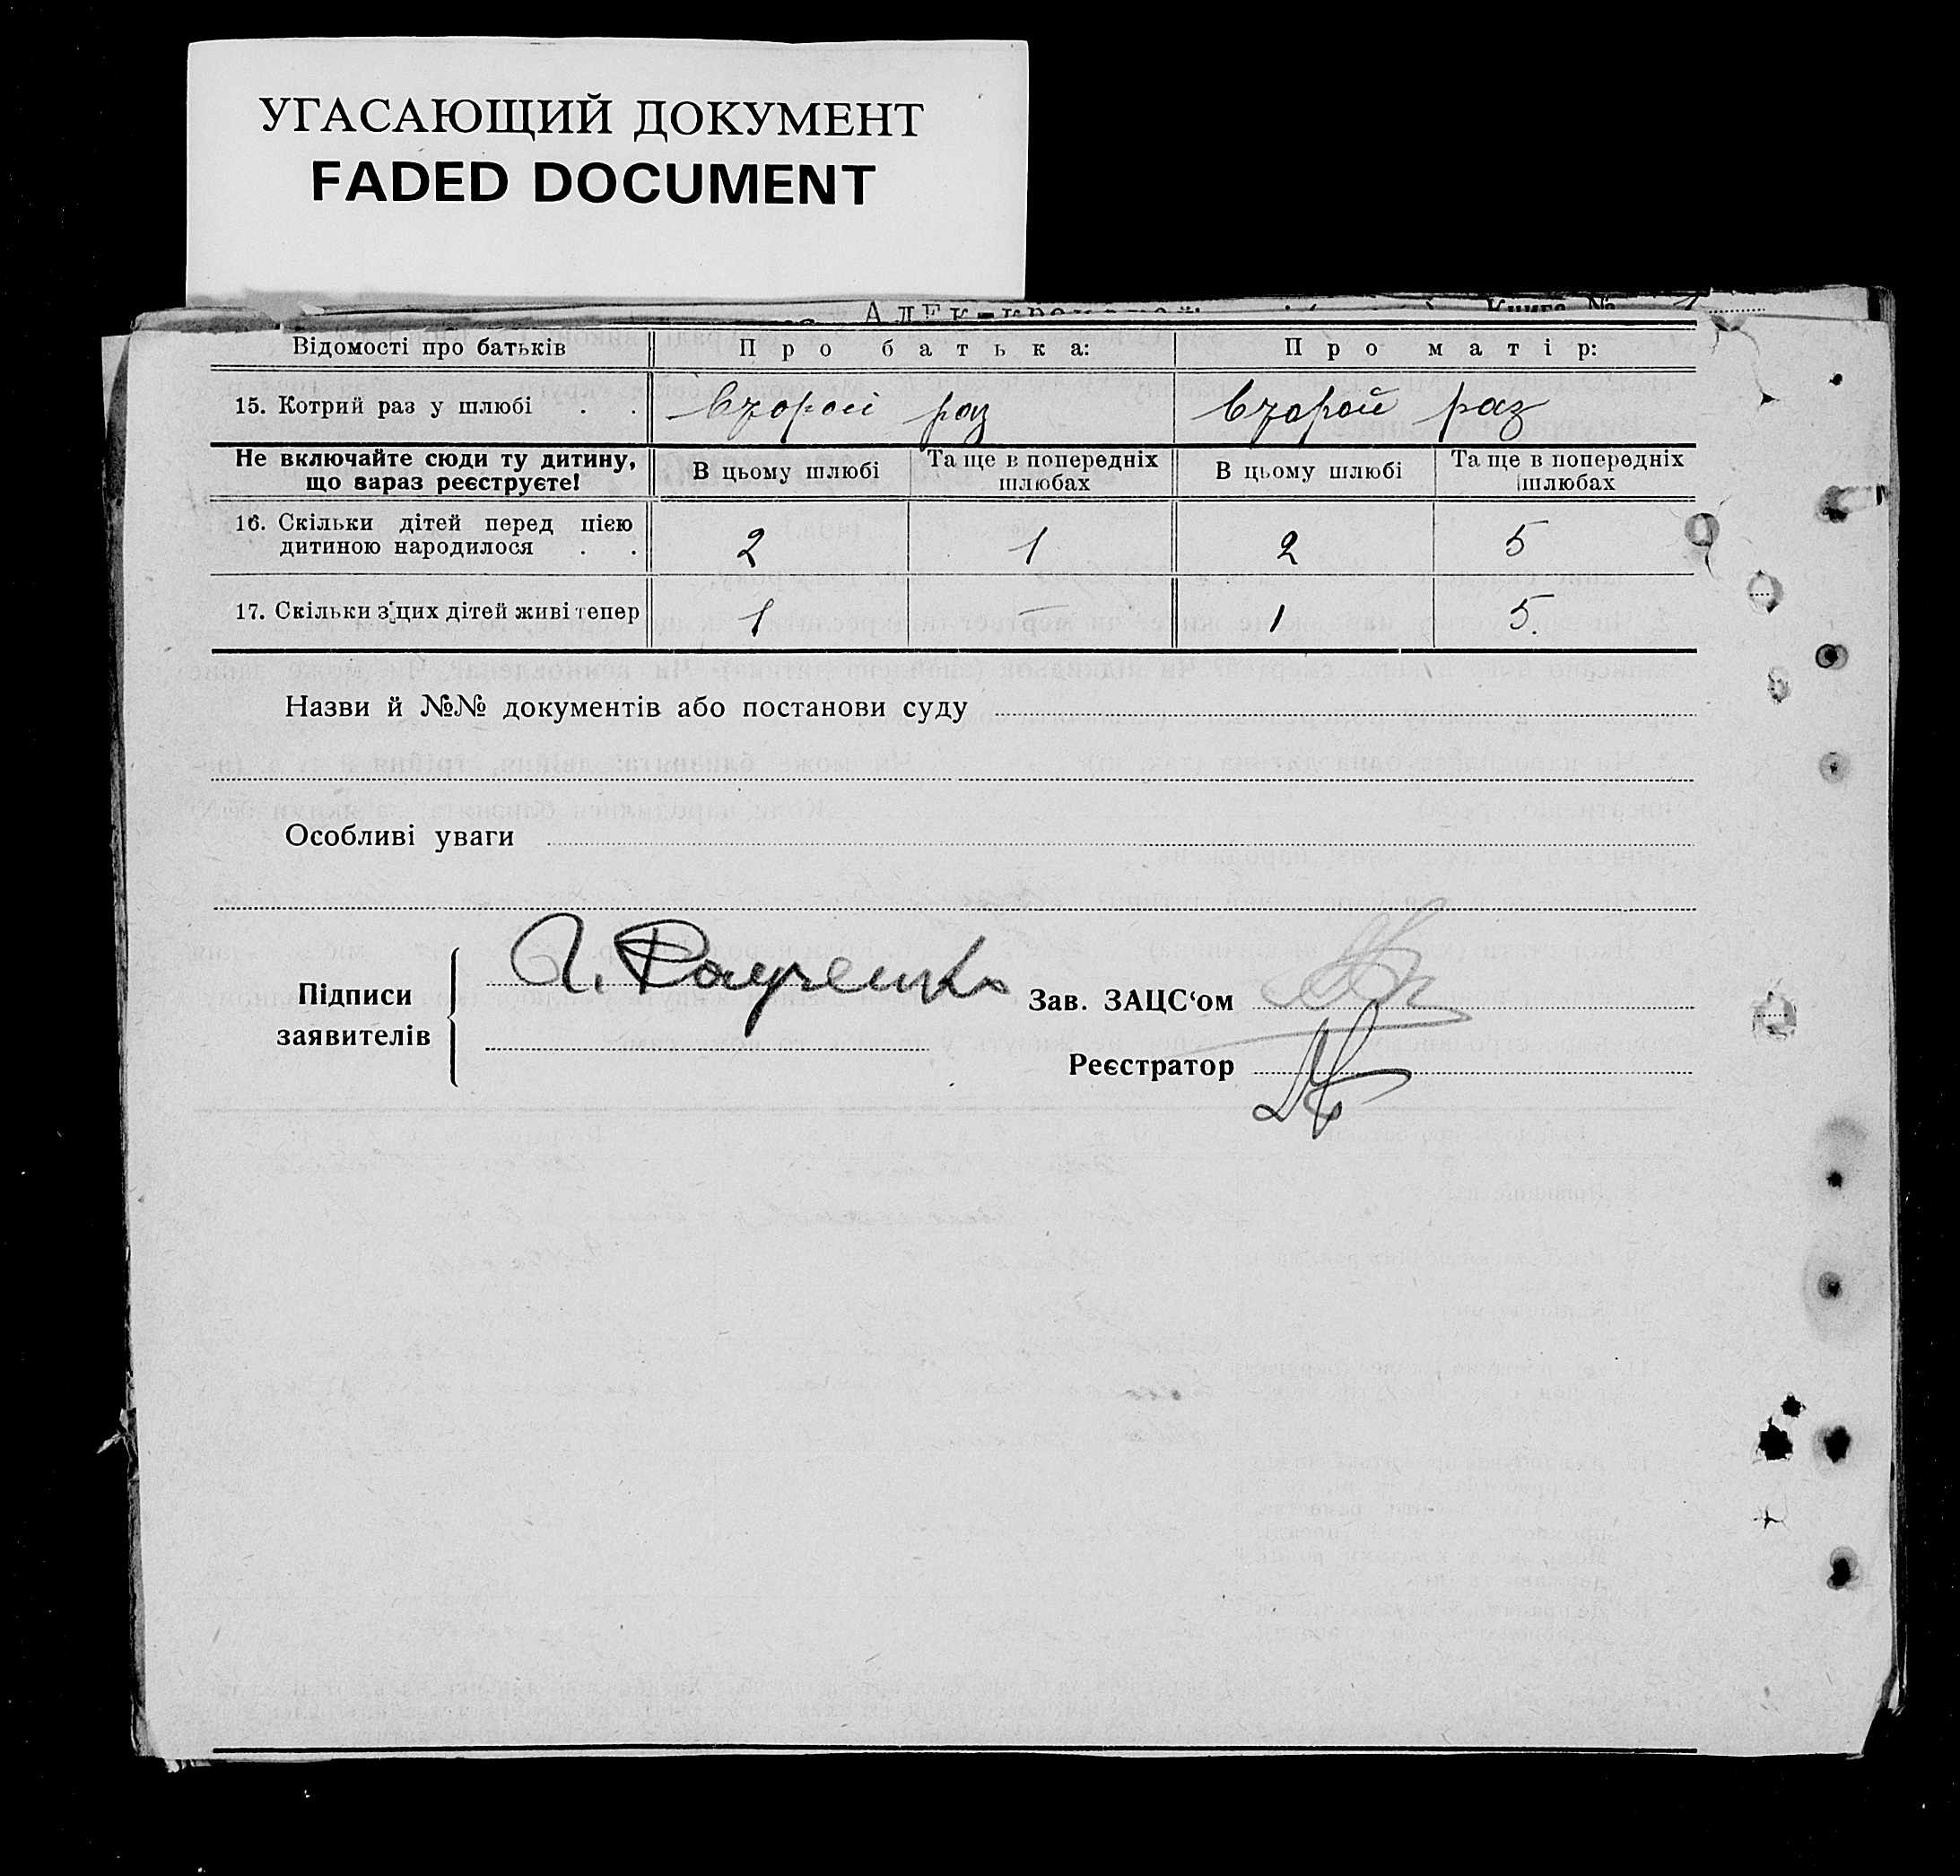 УГАСАЮЩИЙ ДОКУМЕНТ
FADED DOCUMENT
Книга №
Відомості про батьків Про батька: Про матір:
15. Котрий раз у шлюбі . . второй раз второй раз
Не включайте сюди ту дитину, що зараз реєструєте! В цьому шлюбі Та ще в попередніх шлюбах В цьому шлюбі Та ще в попередніх шлюбах
16. Скільки дітей перед цією дитиною народилося . . 2 1 2 5
17. Скільки з цих дітей живі тепер 1 — 1 5.
Назви й №№ документів або постанови суду
Особливі уваги
Підписи заявителів
Зав. ЗАЦС‘ом
Реєстратор